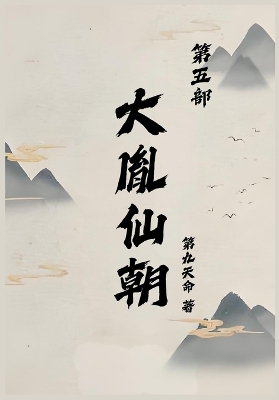 第五部
大胤仙朝
第九天命 著